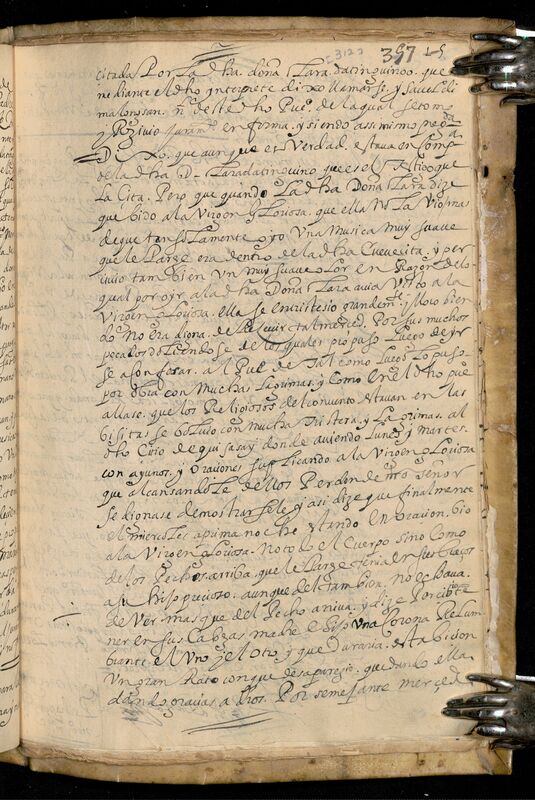 397
citada Por La dha doña Clara datinguinoo. que
mediante el dho ynterprete dixo llamarse, y ser del di
malongsan. nl de este dho Pueo. de la qual se tomo
y Reciuio Juramto en forma, y siendo assimismo preda
Dixo, que aunque es Verdad. estaua en Compa
de la dha Da. Clara datinguino que es el sitio que
La Cita. Pero que quando La dha Doña Clara dize
que bido a la Virgen Gloriosa. que ella No La Vio mas
de que tan solamente oyo Una Musica muy suaue
que le Pareze era dentro de la dha Cueuesita, y per
ciuio tambien Un muy suaue olor en Razon de lo
qual por oyr a la dha Doña Clara auia Visto a la
Virgen gloriosa. ella se entristesio grandemte. y lloro bien
do No era digna. de Reciuir tal merced. Por sus muchos
pecados doliendose de los quales propuso Luego de yr
se a confesar. al Pueo de Tal como Luego Lo puso
por obra con muchas Lagrimas. y Como en el dho pueo
allase. que los Religiosos del conuento estauan en las
bisitas se boluio con mucha tristeza y Lagrimas. al
dho sitio de quisasay donde auiendo Lunes y martes.
con ayunos, y oraciones suplicando a la Virgen gloriosa
que alcansandole de llos Perdon de nro señor
se dignase demostrarsele, y asi dize que finalmente
el miercoles a prima noche estando en oracion. bio
a la Virgen gloriosa. No todo el Cuerpo sino Como
de los Pechos arriba. que le Pareze tenia en sus braços
a su hijo precioso. aunque del tambien. no echaua.
de Ver mas que del Pecho arriua. y dize Perciuio
ner en sus Cabezas madre e hijo Una Corona Relum
brante el Uno y el otro y que duraria. esta bision
Un gran Rato con que desaparezio. quedando ella
dando gracias a Dios. Por semejante merced